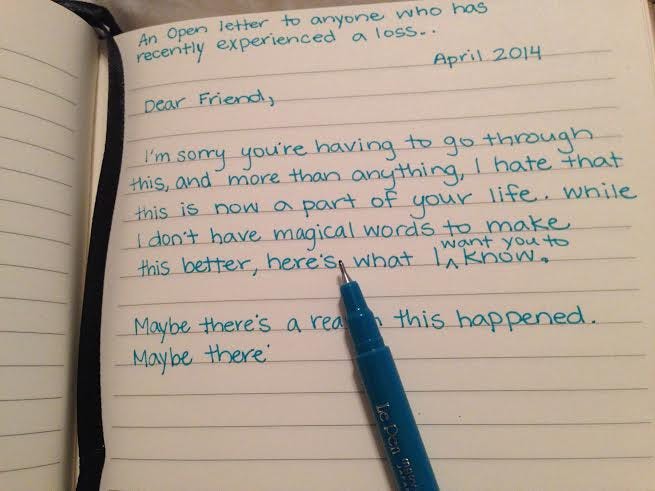 An Open letter to anyone who has
recently experienced a loss..
April 2014
Dear Friend,
I'm sorry you're having to go through
this, and more than anything, I hate that
this is now a part of your life. While
I don't have magical words to make
want you to
this better, here's what I ^ know.
Maybe there's a this happened.
Maybe there'
Le Pen